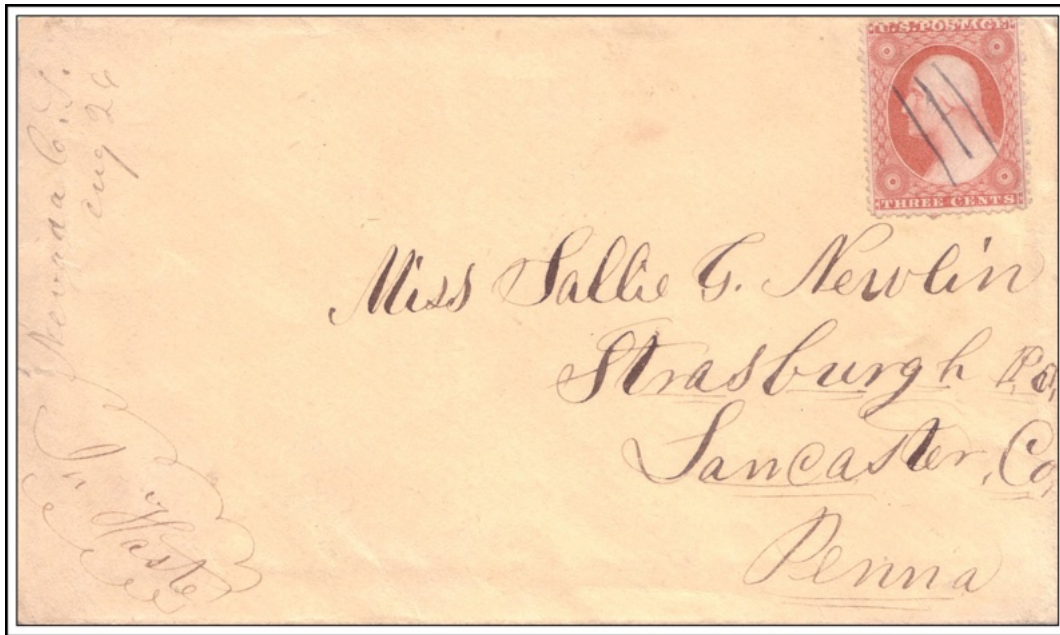 U.S. POSTAGE
THREE CENTS
Aug 24
Miss Sallie G. Newlin
Strasburgh
Lancaster, Co,
Penna
In "Haste